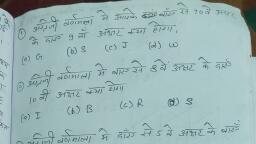 ① अंग्रेजी वर्णमाला में आपके बाएँ से 20 वें अक्षर
के दाएँ 9 वाँ अक्षर क्या होगा,
(a) G (b) S (c) J (d) W
② अंग्रेजी वर्णमाला में बाएं से 8 वें अक्षर के दाएं
10 वीं अक्षर क्या होगा
(a) I (b) B (c) R (d) S
अंग्रेजी वर्णमाला में दाएँ से 5 वे अक्षर के बाएँ